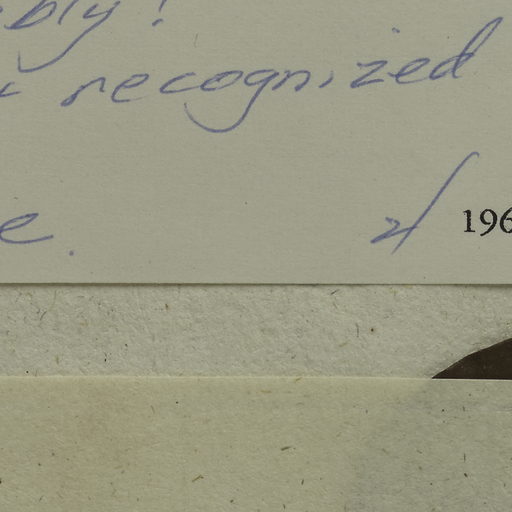 bly!
recognized
e.
196